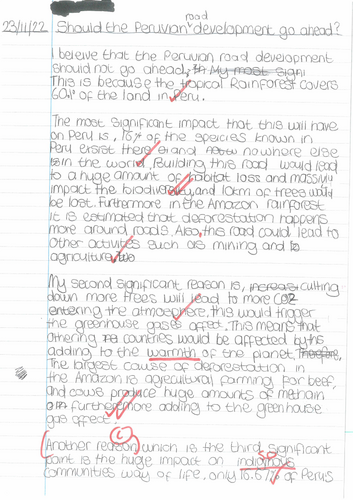 road
23/11/22 Should the Peruvian development go ahead?
I beleive that the Peruvian road development
should not go ahead, My most signi
This is because the tropical Rainforest covers
60% of the land in Peru.
The most significant impact that this will have
on Peru is, 16% of the species known in
Peru exsist there and nowhere else
in the world, Building this road would lead
to a huge amount of habitat loss and massivly
impact the biodiversity, and 10km of trees would
be lost. Furthermore in the Amazon rainforest
it is estimated that deforestation happens
more around roads. Also, this road could lead to
other activites such as mining and
agriculture
My second significant reason is, increas cutting
down more trees will lead to more CO2
entering the atmosphere, this would trigger
the greenhouse gases affect. This means that
othering countries would be affected by this
adding to the warmth of the planet, Therefore,
The largest cause of deforestation in
the Amazon is agricultural farming for beef,
and cows produce huge amounts of methain
furthermore adding to the greenhouse
gas effect.
(Another reason) which is the third significant
sp
point is the huge impact on indigonous
communities way of life, only 10.67% of Perus